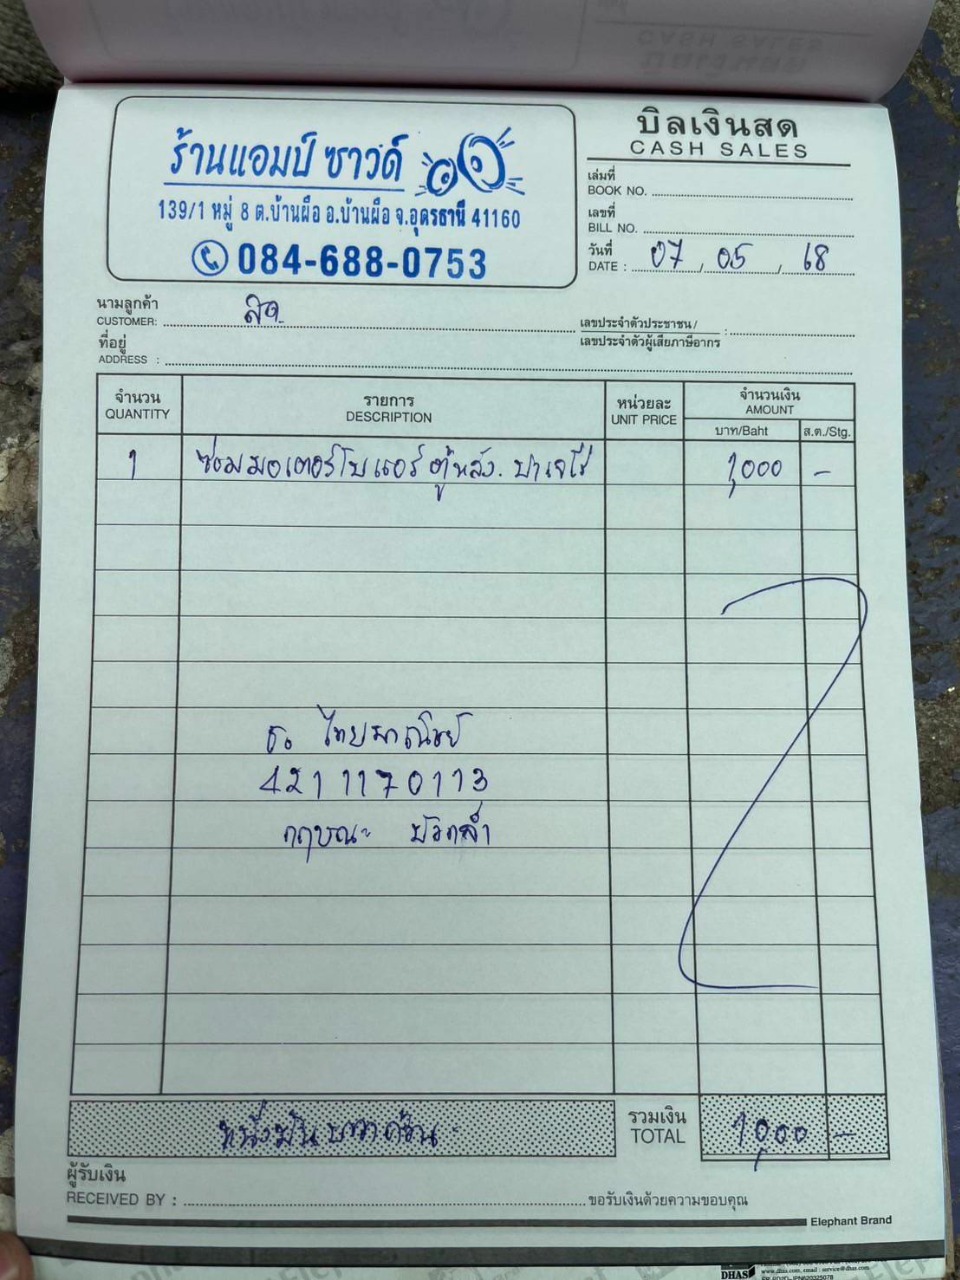 บิลเงินสด
CASH SALES
ร้านแอมป์ ซาวด์
139/1 หมู่ 8 ต.บ้านผือ อ.บ้านผือ จ.อุดรธานี 41160
084-688-0753
เล่มที่
BOOK NO.
เลขที่
BILL NO.
วันที่
DATE : 07, 05, 68
นามลูกค้า
CUSTOMER: สด
เลขประจำตัวประชาชน/
เลขประจำตัวผู้เสียภาษีอากร :
ที่อยู่
ADDRESS :
จำนวน รายการ หน่วยละ จำนวนเงิน
QUANTITY DESCRIPTION UNIT PRICE AMOUNT
บาท/Baht ส.ต./Stg.
1 ซ่อมมอเตอร์โบเออร์ ตู้หลัง. ปาเจโร่ 1,000 -
ธ. ไทยพาณิชย์
421 1170113
กฤษณะ
หนึ่งพันบาทถ้วน - รวมเงิน 1,000 -
TOTAL
ผู้รับเงิน
RECEIVED BY : ขอรับเงินด้วยความขอบคุณ
Elephant Brand
DHAS